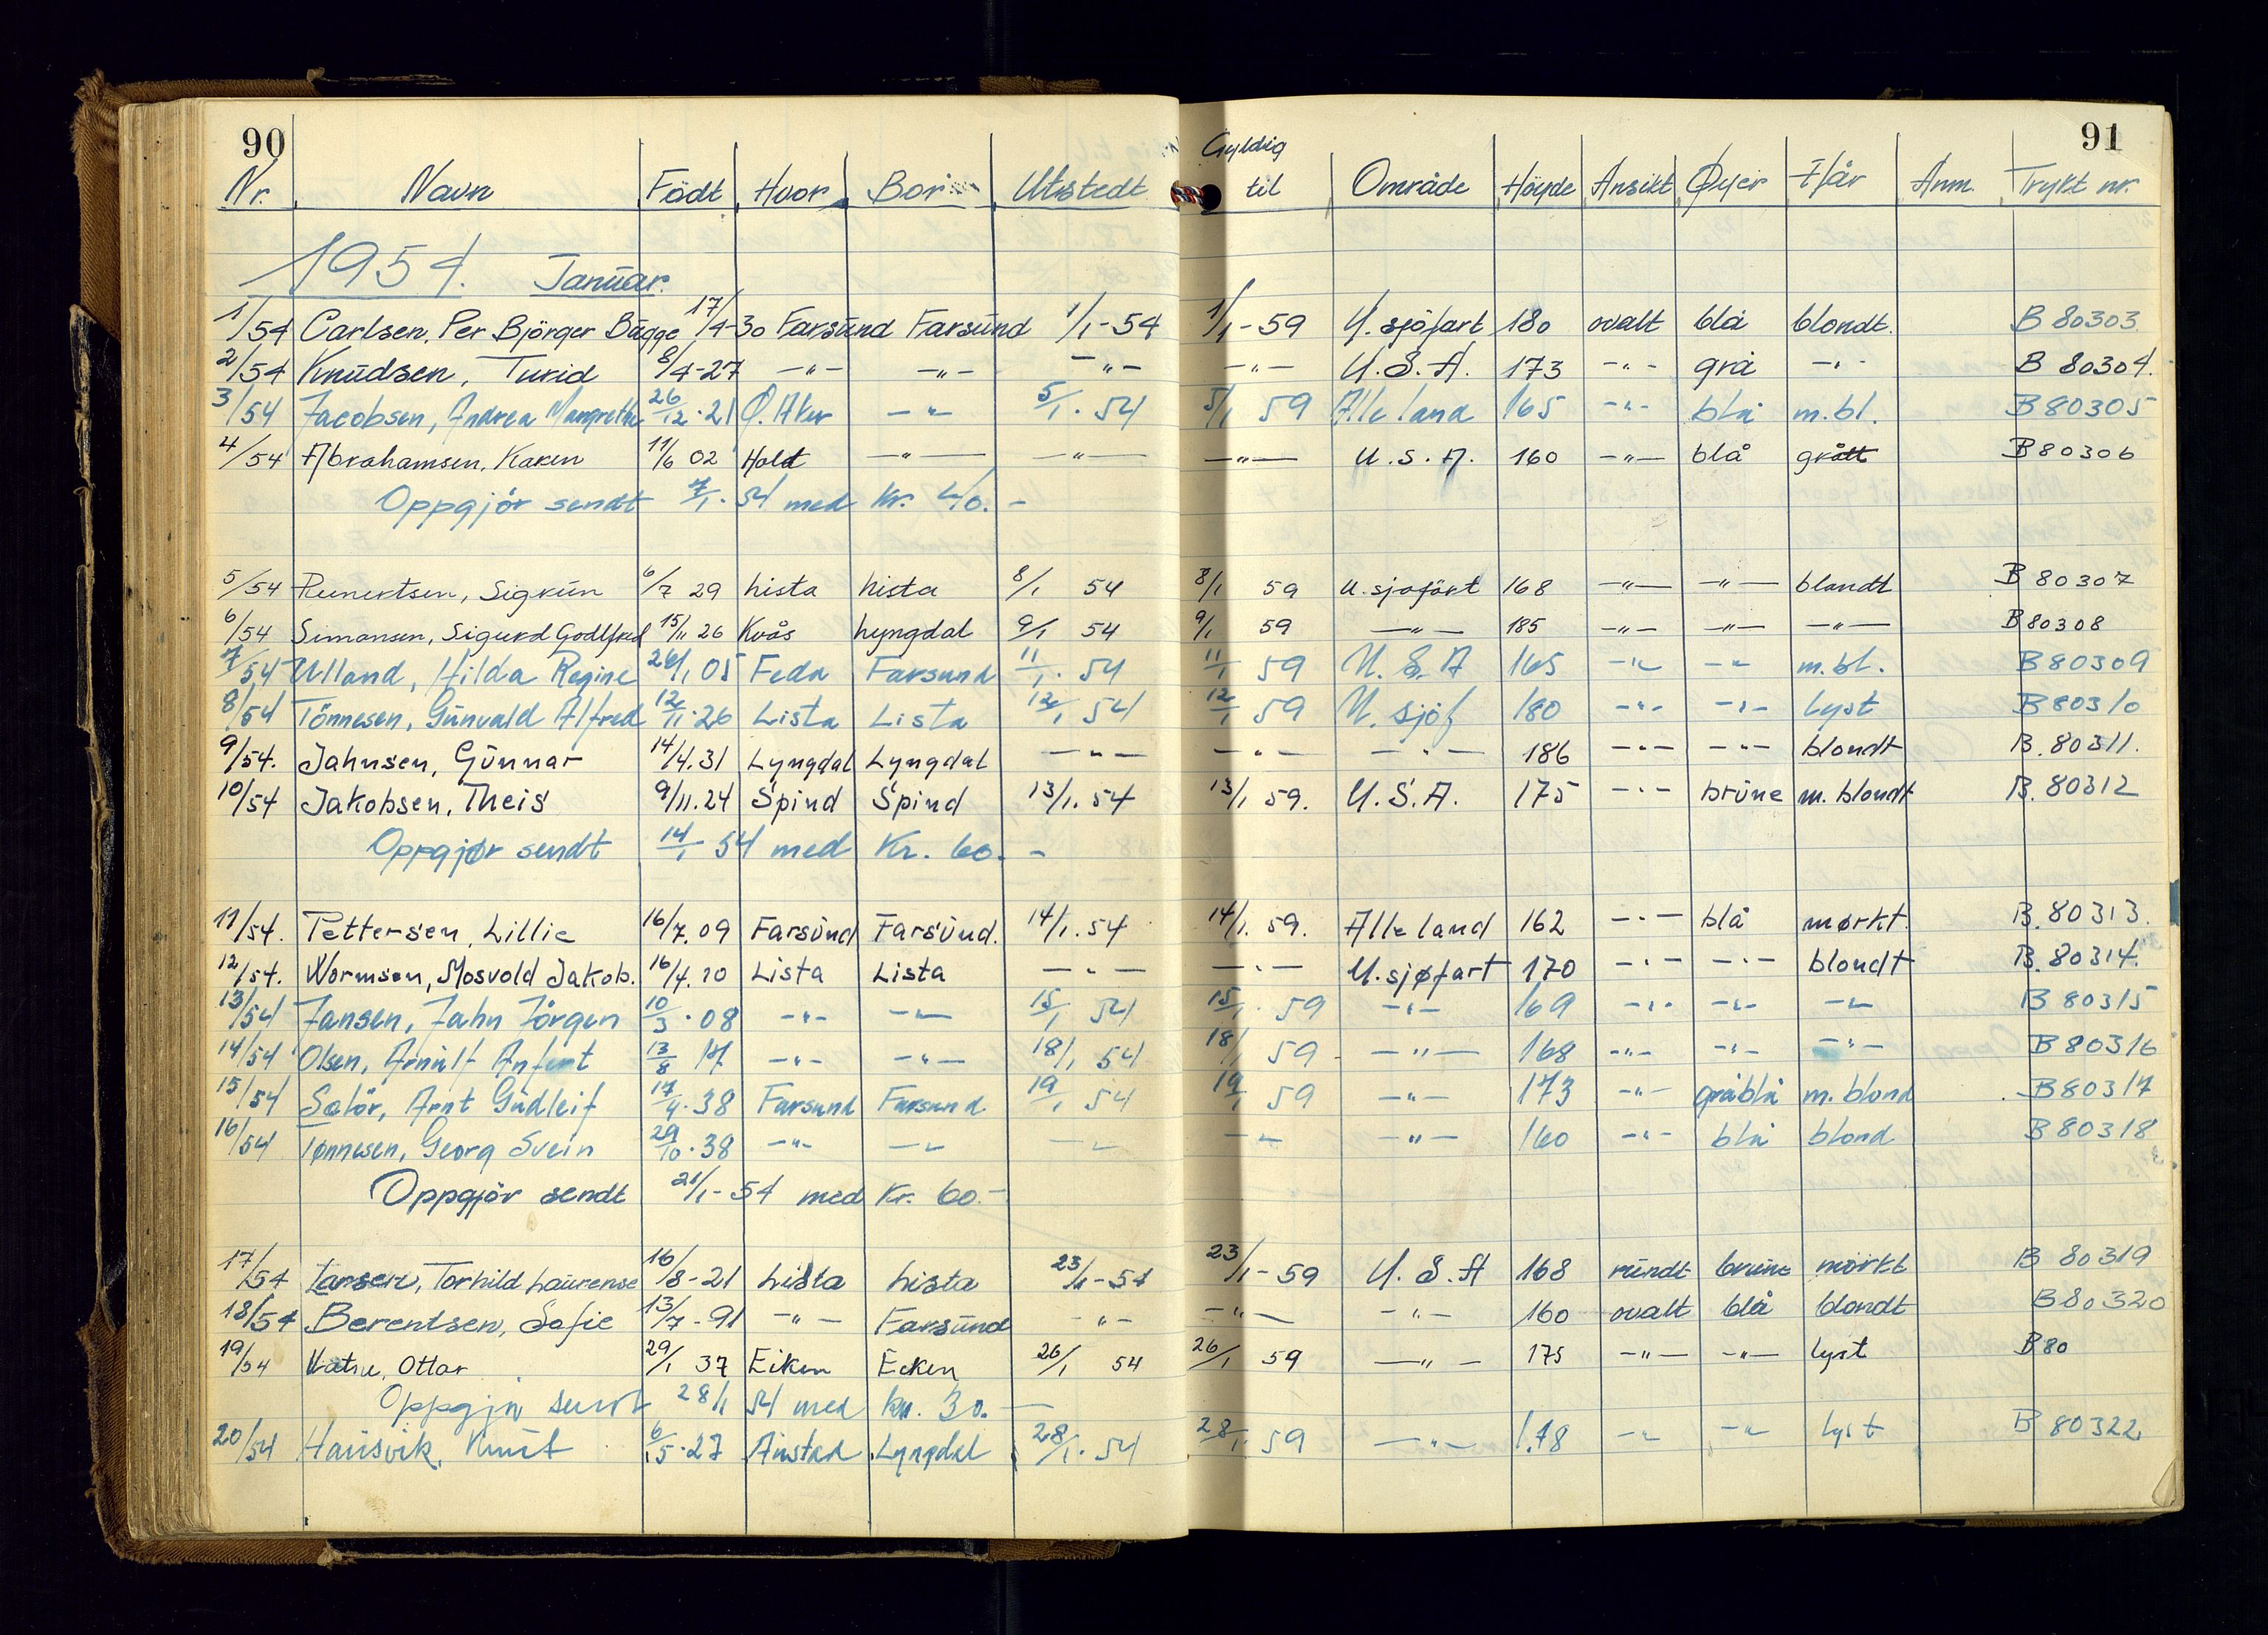 90
91
Nr. Navn Födt Hvor Bor Utstedt Gyldig til Område Höyde Ansikt Øyer Hår Anm. Trykt nr.
1954. Januar.
1/54 Carlsen, Per Björger Bugge 17/4-30 Farsund Farsund 1/1-54 1/1-59 U. sjöfart 180 ovalt blå blondt. B 80303
2/54 Knudsen, Turid 8/4-27 -"- -"- -"- -"- U.S.A. 173 -"- grå -"- B 80304.
3/54 Jacobsen, Andrea Margrethe 26/12.21 Ø. Aker -"- 5/1.54 5/1 59 Alle land 165 -"- blå m.bl. B 80305
4/54 Abrahamsen, Karen 11/6 02 Holt -"- -"- -"- U.S.A. 160 -"- blå grått B 80306
Oppgjör sendt 7/1.54 med kr. 40.-
5/54 Reinertsen, Sigrun 6/7 29 Lista Lista 8/1 54 8/1 59 U. sjøfart 168 -"- -"- blondt B 80307
6/54 Simonsen, Sigurd Godtfred 15/11 26 Kvås Lyngdal 9/1 54 9/1 59 -"- 185 -"- -"- -"- B 80308
7/54 Ulland, Hilda Regine 26/1 05 Feda Farsund 11/1.54 11/1 59 U.S.A 165 -"- -"- m.bl. B 80309
8/54 Tönnesen, Gunvald Alfred 12/11.26 Lista Lista 12/1 54 12/1 59 U. sjöf 180 -"- -"- lyst B 80310
9/54. Jahnsen, Gunnar 14/4.31 Lyngdal Lyngdal -"- -"- -"- 186 -"- -"- blondt B. 80311.
10/54 Jakobsen, Theis 9/11.24 Spind Spind 13/1.54 13/1 59. U.S.A. 175 -"- brune m. blondt B. 80312
Oppgjør sendt 14/1 54 med Kr. 60.-
11/54. Pettersen, Lillie 16/7.09 Farsund Farsund. 14/1.54 14/1.59. Alle land 162 -"- blå mørkt. B. 80313.
12/54. Wormsen, Mosvold Jakob. 16/4.10 Lista Lista -"- -"- U. sjøfart 170 -"- -"- blondt B. 80314.
13/54 Jansen, Jahn Jörgen 10/3.08 -"- -"- 15/1 54 15/1.59 -"- 169 -"- -"- -"- B 80315
14/54 Olsen, Arnulf 13/8 17 -"- -"- 18/1 54 18/1 59 -"- 168 -"- -"- -"- B 80316
15/54 Selör, Arnt Gudleif 17/4.38 Farsund Farsund 19/1 54 19/1 59 -"- 173 -"- gråblå m. blond B 80317
16/54 Tønnesen, Georg Svein 29/10.38 -"- -"- -"- -"- -"- 160 -"- blå blond B 80318
Oppgjör sendt 21/1-54 med Kr. 60.-
17/54 Larsen, Torhild Laurense 16/8-21 Lista Lista 23/1-54 23/1-59 U.S.A 168 rundt brune mörkt B 80319
18/54 Berentsen, Sofie 13/7-91 -"- Farsund -"- -"- -"- 160 ovalt blå blondt B 80320
19/54 Ottar 29/1 37 Eiken Eiken 26/1 54 26/1 59 -"- 175 -"- -"- lyst B 80
Oppgjör sendt 28/1 54 med kr. 30.-
20/54 Hausvik, Knut 6/5.27 Austad Lyngdal 28/1.54 28/1 59 -"- 178 -"- -"- lyst B 80322